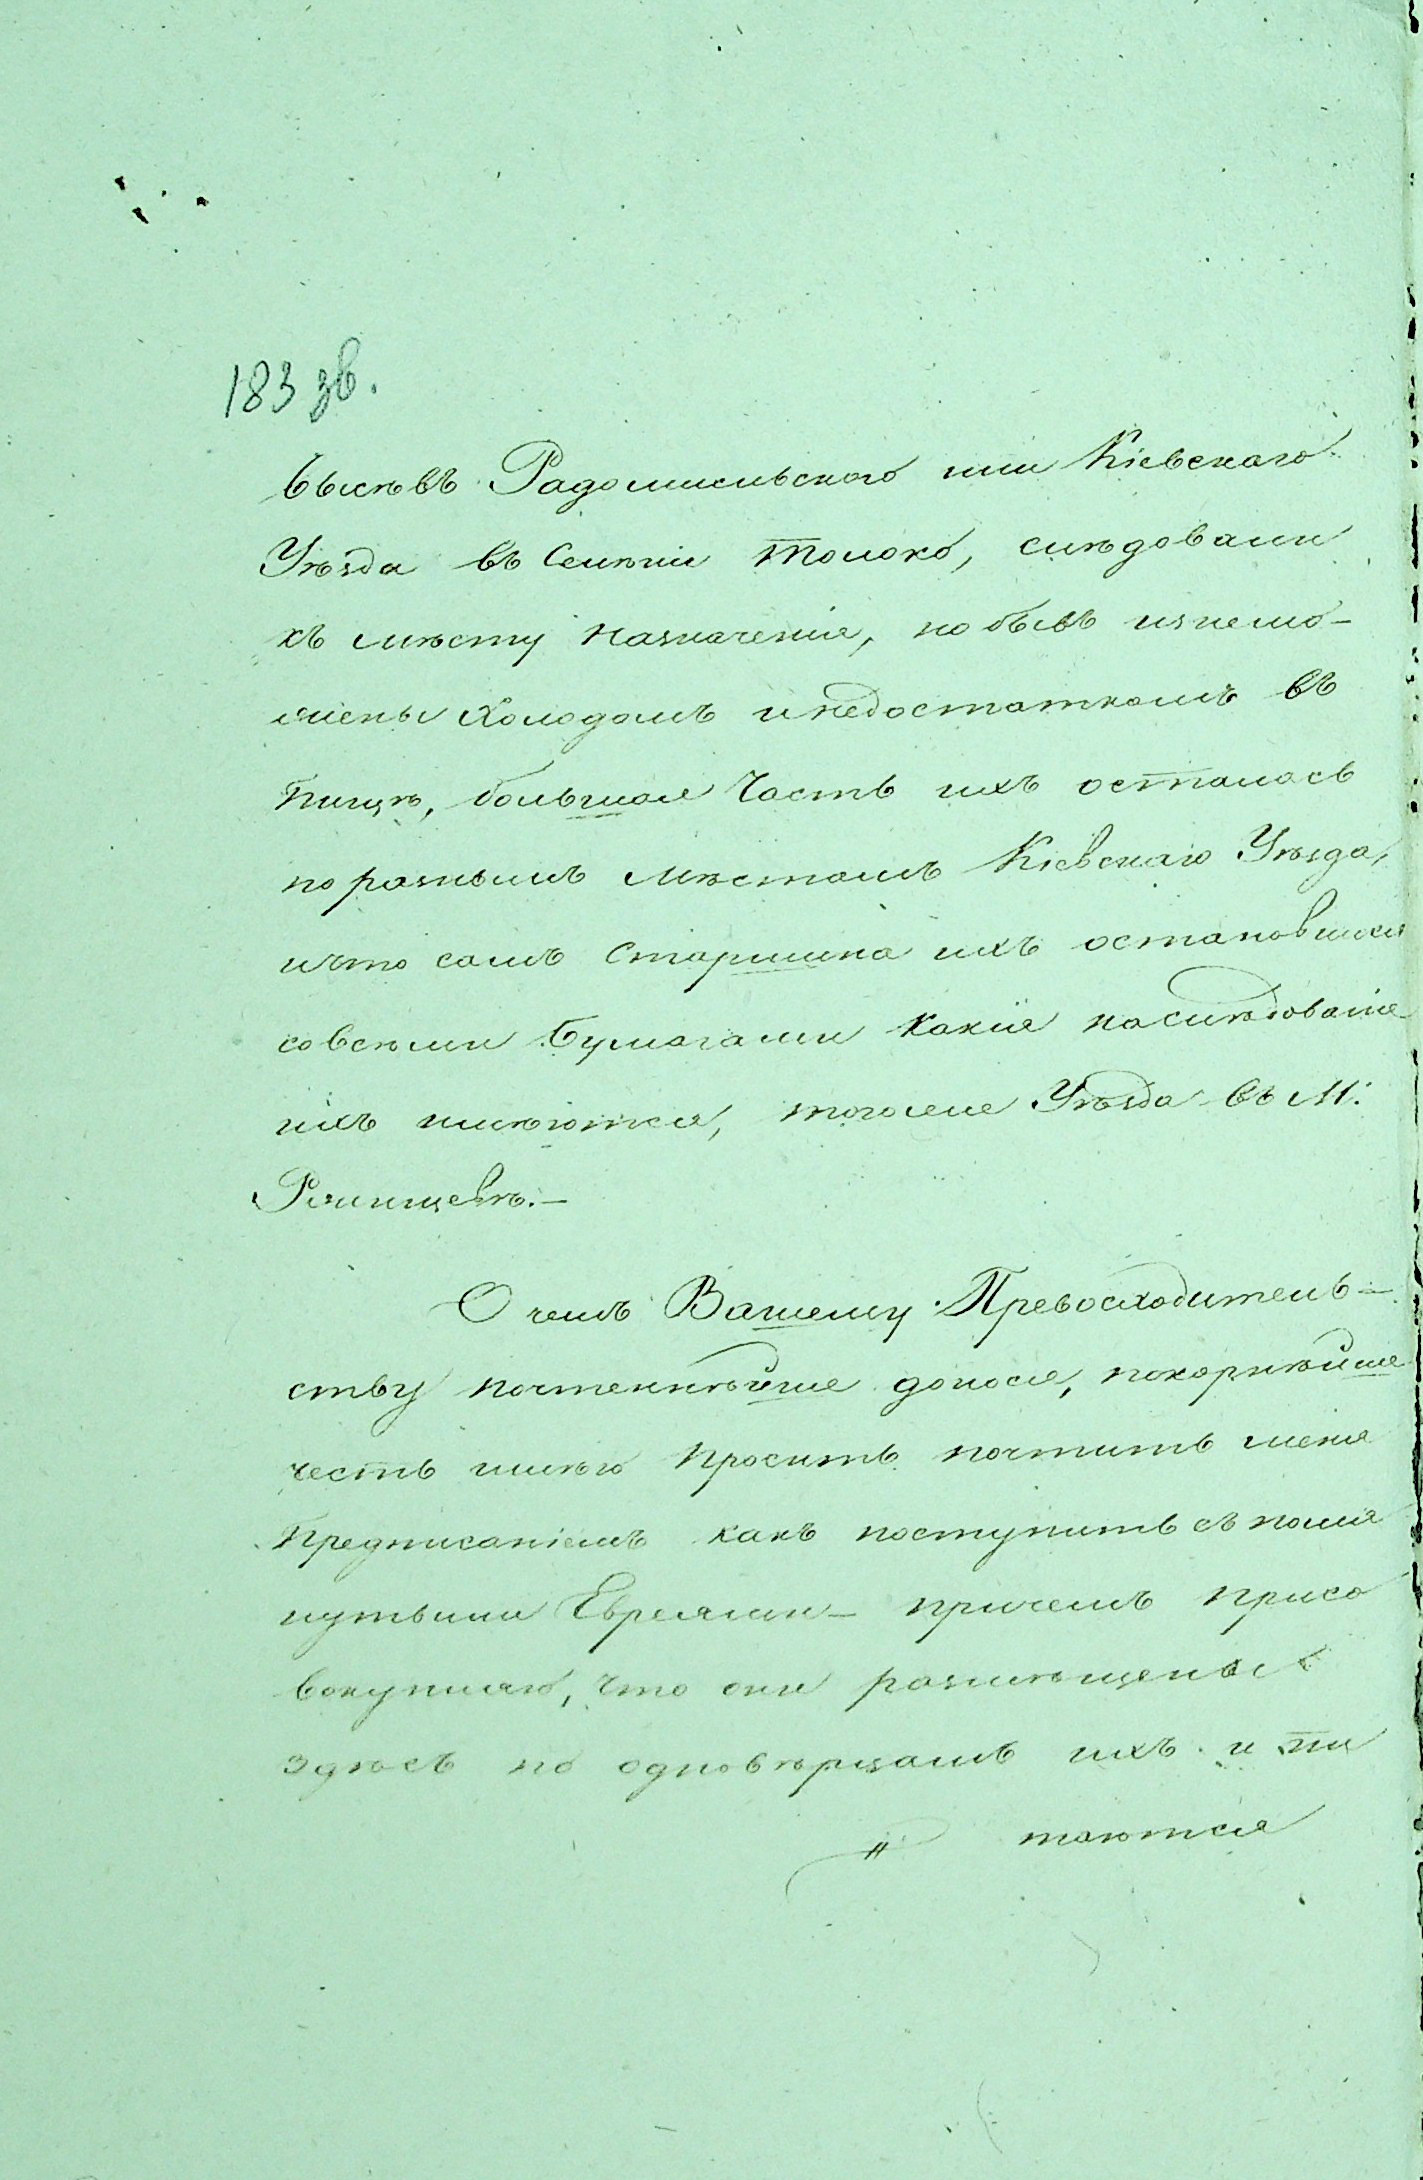 183 зв.
Радомисльского или Кіевскаго
Уѣзда въ Селѣніи Толокô, слѣдовали
къ мѣсту назначенія, но бывъ изнемо-
жены холодомъ и недостаткомъ въ
пищѣ, большая часть ихъ осталась
по разнымъ мѣстамъ Кіевскаго Уѣзда,
и что самъ Старшина ихъ остановился
со всѣми бумагами какія на слѣдованіе
ихъ имѣются, того же Уѣзда въ М:
Ржищевѣ.—
О чемъ Вашему Превосходитель-
ству почтеннѣйше донося, покорнѣйше
честь имѣю просить почтить меня
предписаніемъ какъ поступить съ помя
нутыми Евреями— причемъ присо
вокупляю, что они размѣщены
здѣсь по одновѣрцамъ ихъ и пи
таются